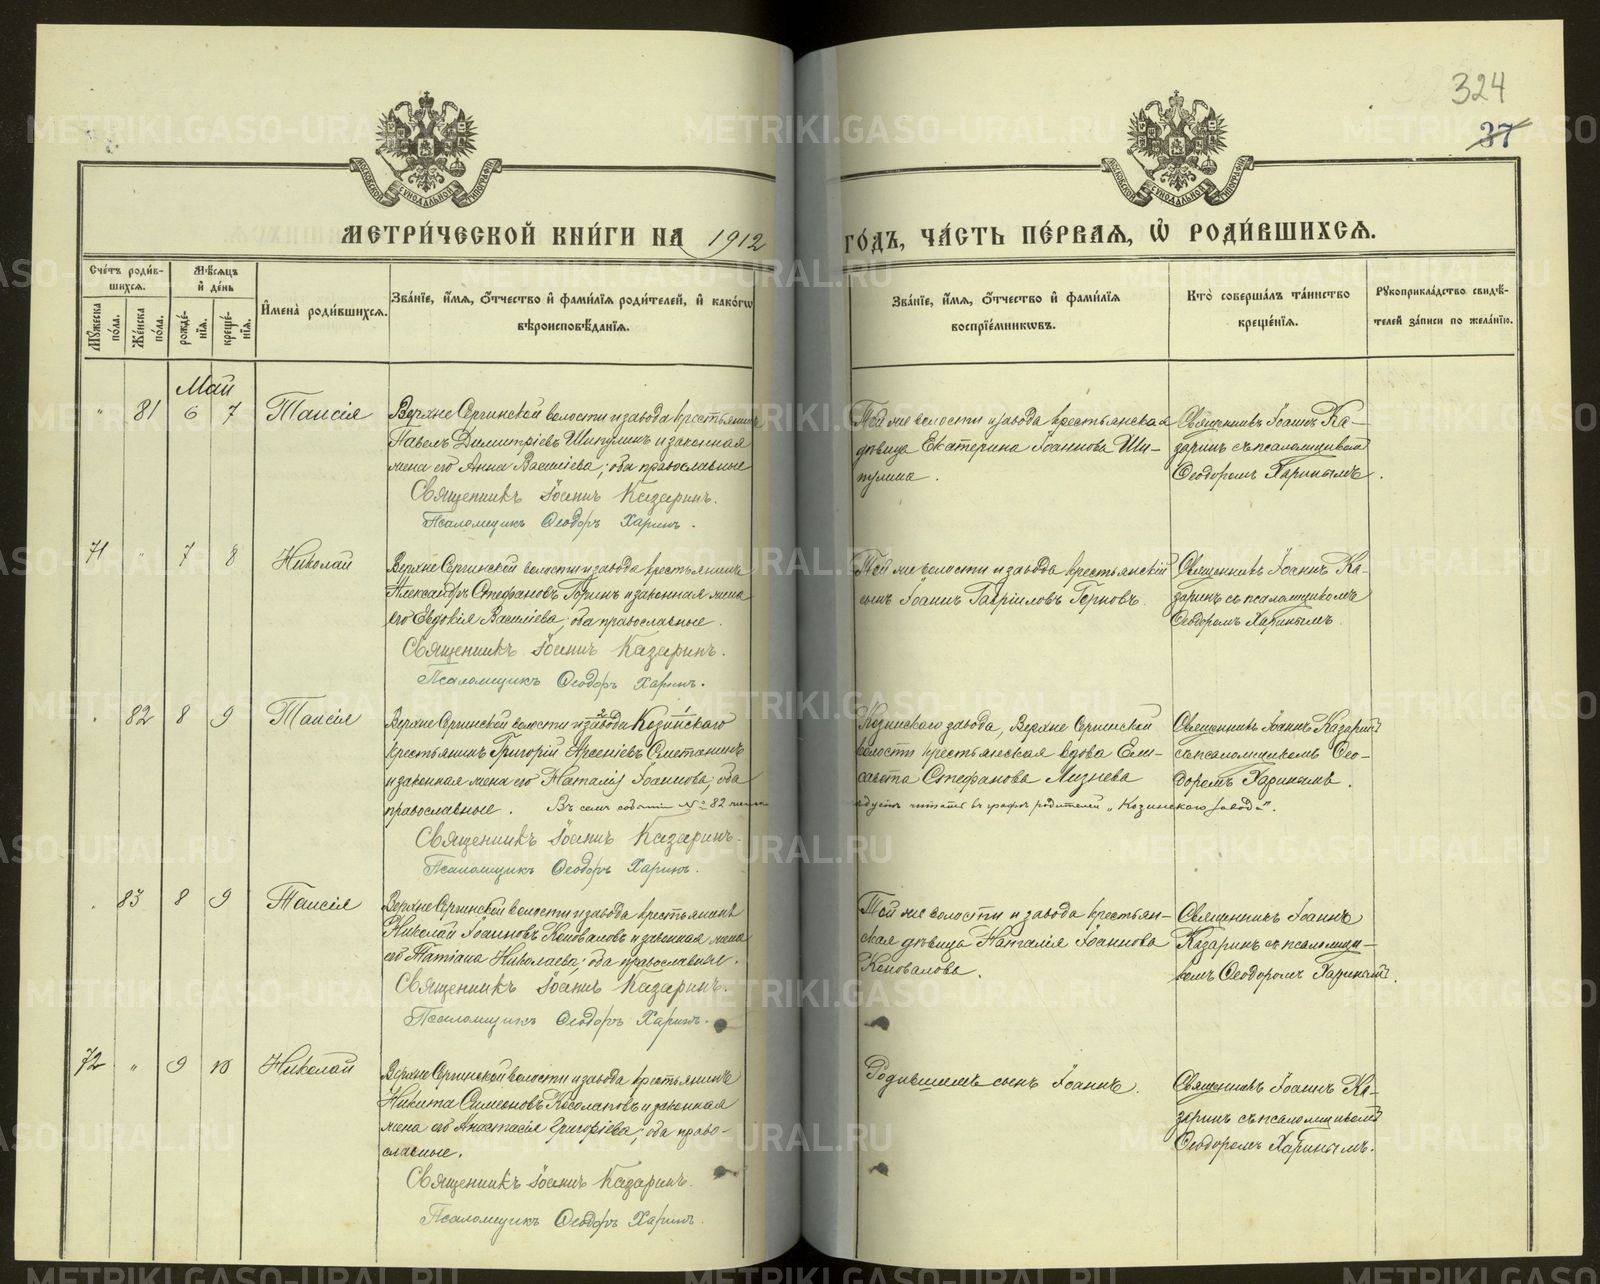 324
37
МОСКОВСКОЙ СѴНОДАЛЬНОЙ ТИПОГРАФІИ
МОСКОВСКОЙ СѴНОДАЛЬНОЙ ТИПОГРАФІИ
МЕТРИ́ЧЕСКОЙ КНИ́ГИ НА 1912 ГО́ДЪ, ЧА́СТЬ ПЕ́РВАЯ, Ѡ РОДИ́ВШИХСЯ.
Сче́тъ роди́вшихся.
Мꙋ́жеска по́ла.
Же́нска по́ла.
Мѣ́сяцъ и҆ де́нь
рожде́нїя.
креще́нїя.
И҆мена̀ роди́вшихся.
Зва́нїе, и҆́мя, ѻ҆́тчество и҆ фами́лїя роди́телей, и҆ како́гѡ вѣроисповѣ́данїя.
Зва́нїе, и҆́мя, ѻ҆́тчество и҆ фами́лїя воспрїе́мникѡвъ.
Кто̀ соверша́лъ та́инство креще́нїя.
Рꙋкоприкла́дство свидѣ́телей за́писи по жела́нїю.
Май
" 81 6 7 Таисія
Верхне Сергинской волости и завода крестьянинъ
Павелъ Димитріевъ Шипулинъ и законная
жена его Анна Василіева; оба православные
Священникъ Іоаннъ Казаринъ.
Псаломщикъ Ѳеодоръ Харинъ.
Той же волости и завода крестьянская
дѣвица Екатерина Іоаннова Ши-
пулина.
Священникъ Іоаннъ Ка-
заринъ съ псаломщикомъ
Ѳеодоромъ Харинымъ.
71 " 7 8 Николай
Верхне Сергинской волости и завода крестьянинъ
Александръ Стефановъ Горинъ и законная жена
его Евдокія Василіева; оба православные.
Священникъ Іоаннъ Казаринъ.
Псаломщикъ Ѳеодоръ Харинъ.
Той же волости и завода крестьянскій
сынъ Іоаннъ Гавріиловъ
Священникъ Іоаннъ Ка-
заринъ съ псаломщикомъ
Ѳеодоромъ Харинымъ.
. 82 8 9 Таисія
Верхне Сергинской волости и завода Козинскаго
крестьянинъ Григорій Арсеніевъ Сметанинъ
и законная жена его Наталія Іоаннова; оба
православные. Въ семъ событіи № 82
Священникъ Іоаннъ Казаринъ.
Псаломщикъ Ѳеодоръ Харинъ.
Козинскаго завода, Верхне Сергинской
волости крестьянская вдова Ели-
савета Стефанова Лизнева
дуетъ читать въ графѣ родителей „Козинскаго завода".
Священникъ Іоаннъ Казаринъ
съ псаломщикомъ Ѳео-
доромъ Харинымъ.
. 83 8 9 Таисія
Верхне Сергинской волости и завода крестьянинъ
Николай Іоанновъ Коноваловъ и законная жена
его Татіана Николаева; оба православные.
Священникъ Іоаннъ Казаринъ.
Псаломщикъ Ѳеодоръ Харинъ.
Той же волости и завода крестьян-
ская дѣвица Наталія Іоаннова
Коновалова.
Священникъ Іоаннъ
Казаринъ съ псаломщи-
комъ Ѳеодоромъ Харинымъ.
72 " 9 10 Николай
Верхне Сергинской волости и завода крестьянинъ
Никита Симеоновъ Косолаповъ и законная
жена его Анастасія Григоріева; оба право-
славные.
Священникъ Іоаннъ Казаринъ.
Псаломщикъ Ѳеодоръ Харинъ.
Родившемъ сынъ Іоаннъ.
Священникъ Іоаннъ Ка-
заринъ съ псаломщикомъ
Ѳеодоромъ Харинымъ.
METRIKI.GASO-URAL.RU